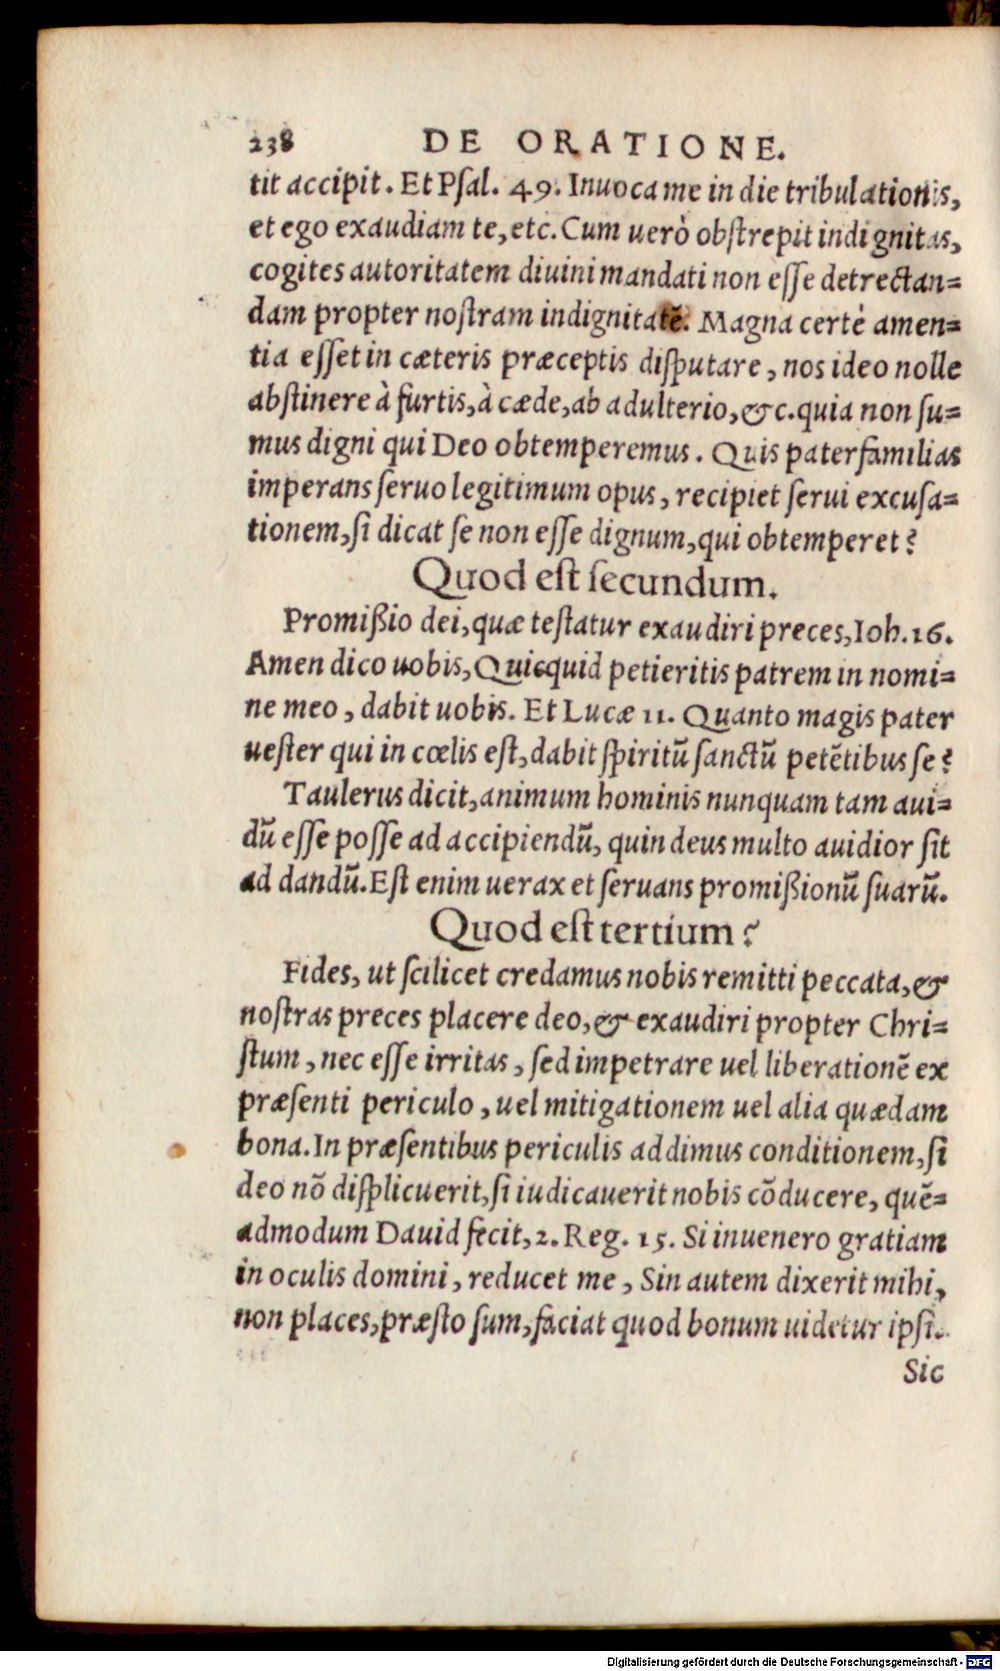 238 DE ORATIONE.
tit accipit. Et Psal. 49. Inuoca me in die tribulationis,
et ego exaudiam te, etc. Cum uerò obstrepit indignitas,
cogites autoritatem diuini mandati non esse detrectan=
dam propter nostram indignitatē. Magna certè amen=
tia esset in cæteris præceptis disputare, nos ideo nolle
abstinere à furtis, à cæde, ab adulterio, &c. quia non su=
mus digni qui Deo obtemperemus. Quis paterfamilias
imperans seruo legitimum opus, recipiet serui excusa=
tionem, si dicat se non esse dignum, qui obtemperet?
Quod est secundum.
Promißio dei, quæ testatur exaudiri preces, Ioh. 16.
Amen dico uobis, Quicquid petieritis patrem in nomi=
ne meo, dabit uobis. Et Lucæ 11. Quanto magis pater
uester qui in cœlis est, dabit spiritū sanctū petētibus se?
Taulerus dicit, animum hominis nunquam tam aui=
dū esse posse ad accipiendū, quin deus multo auidior sit
ad dandū. Est enim uerax et seruans promißionū suarū.
Quod est tertium?
Fides, ut scilicet credamus nobis remitti peccata, &
nostras preces placere deo, & exaudiri propter Chri=
stum, nec esse irritas, sed impetrare uel liberationē ex
præsenti periculo, uel mitigationem uel alia quædam
bona. In præsentibus periculis addimus conditionem, si
deo nō displicuerit, si iudicauerit nobis cōducere, quē=
admodum Dauid fecit, 2. Reg. 15. Si inuenero gratiam
in oculis domini, reducet me, Sin autem dixerit mihi,
non places, præsto sum, faciat quod bonum uidetur ipsi.
Sic
Digitalisierung gefördert durch die Deutsche Forschungsgemeinschaft - DFG